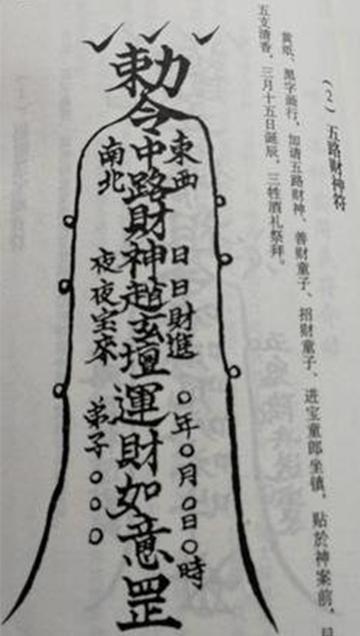 （2）五路财神符
黄纸、黑字画行，加请五路财神、善财童子、招财童子、进宝童郎坐镇，贴於神案前，
五支清香，三月十五日诞辰，三牲酒礼祭拜。
勅令
東西
日日財進
○年○月○日○時
中路財神趙玄壇運財如意罡
南北
夜夜宝來
弟子○○○